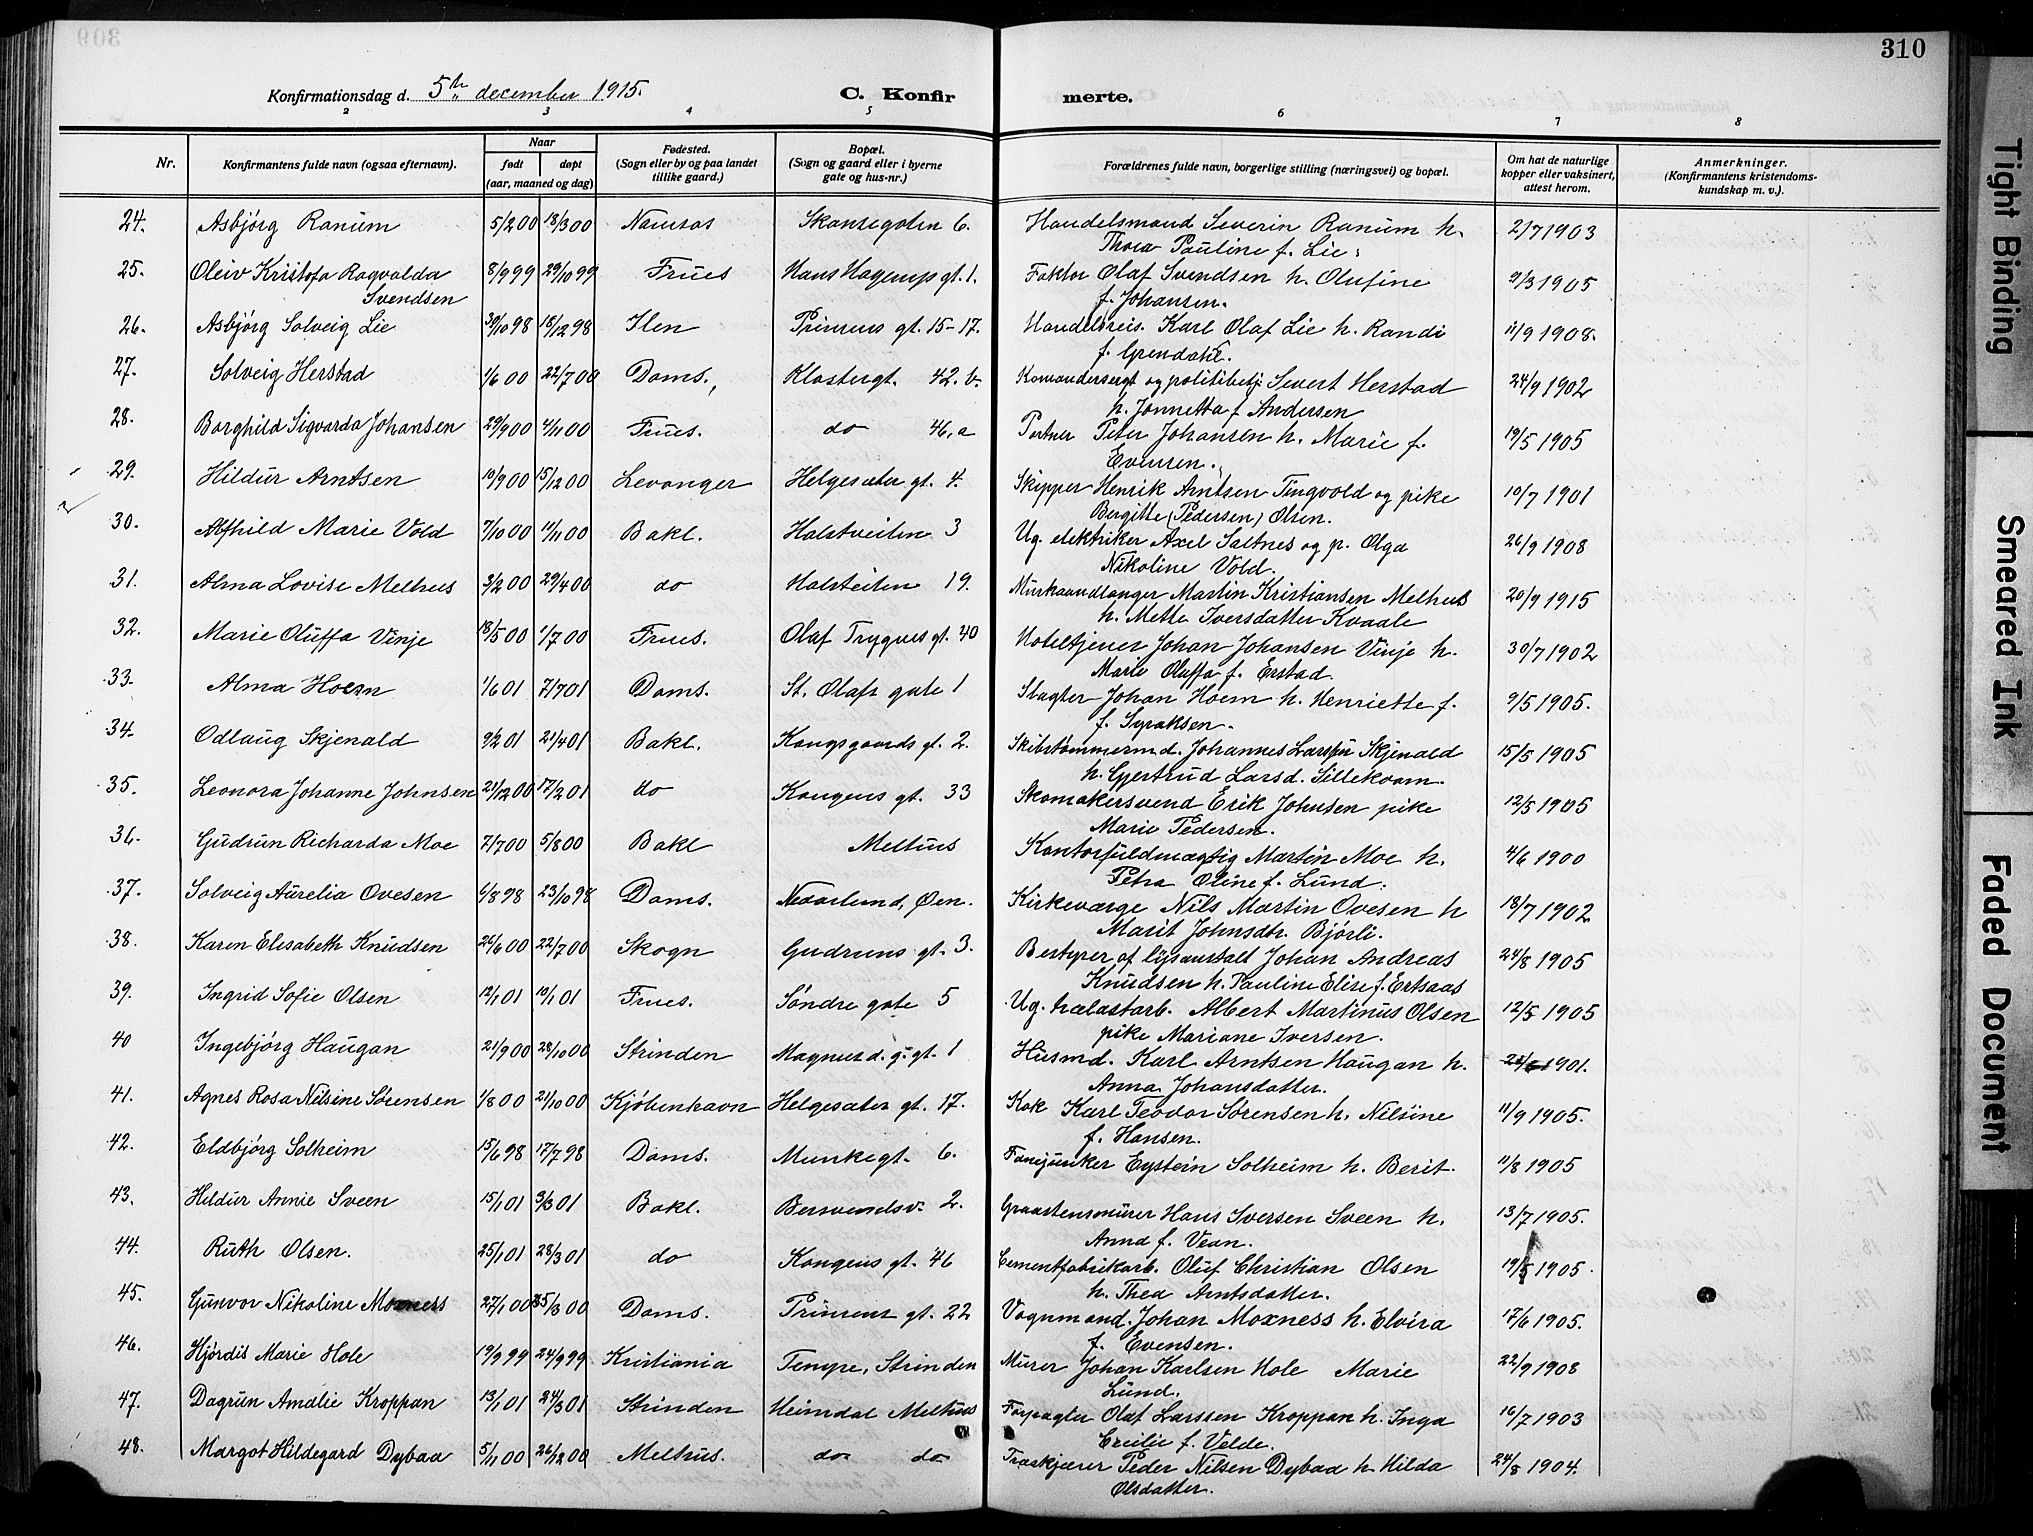 309
310
Konfirmationsdag d. 5te december 1915.
C. Konfirmerte.
2 3 4 5 6 7 8
Nr. Konfirmantens fulde navn (ogsaa efternavn). Naar født døpt (aar, maaned og dag) Fødested. (Sogn eller by og paa landet tillike gaard.) Bopæl. (Sogn og gaard eller i byerne gate og hus-nr.) Forældrenes fulde navn, borgerlige stilling (næringsvei) og bopæl. Om hat de naturlige kopper eller vaksinert, attest herom. Anmerkninger. (Konfirmantens kristendomskundskap m. v.).
24. Asbjørg Ranum 5/2 00 18/3 00 Namsos Skansegaten 6. Handelsmand Severin Ranum h. 2/7 1903
Thora Pauline f. Lie
25. Oleiv Kristofa Ragvalda 8/9 99 29/10 99 Frues Hans Hagerups gt. 1. Faktor Olaf Svendsen h. Olufine 9/3 1905
Svendsen f. Johansen.
26. Asbjørg Solveig Lie 30/10 98 18/12 98 Ilen Prinsens gt. 15-17. Handelsreis. Karl Olaf Lie h. Randi 11/9 1908.
f. Grendahl.
27. Solveig Herstad 1/6 00 22/7 00 Doms. Klostergt. 42. b. Komandersergt og politibetj. Sivert Herstad 24/9 1902
h. Jonnetta f. Andersen
28. Borghild Sigvarda Johansen 29/9 00 4/11 00 Frues. do 46, a Portner Peter Johansen h. Marie f. 19/5 1905
Evensen.
29. Hildur Arntsen 10/9 00 15/12 00 Levanger Helgesæter gt. 4. Skipper Henrik Arntsen Tingvold og pike 10/7 1901
Bergitte (Pedersen) Olsen.
30. Alfhild Marie Vold 7/10 00 11/11 00 Bakl. Halstveiten 3 Ug. elektriker Axel Saltnes og p. Olga 26/9 1908
Nikoline Vold.
31. Alma Lovise Melhus 3/2 00 29/4 00 do Halsteiten 19. Murhaandlanger Martin Kristiansen Melhus 20/9 1915
h. Mette Iversdatter Kvaale
32. Marie Oluffa Vinje 18/5 00 1/7 00 Frues. Olaf Trygves gt. 40 Hoteltjener Johan Johansen Vinje h. 30/7 1902
Marie Oluffa f. Erstad.
33. Alma Hoem 1/6 01 7/7 01 Doms. St. Olafs gate 1 Slagter Johan Hoem h. Henriette f. 9/5 1905.
f. Syraksen.
34. Odlaug Skjenald 9/2 01 21/4 01 Bakl. Kongsgaards gt. 2. Skibstømmermd. Johannes Larssen Skjenald 15/5 1905
h. Gjertrud Larsd. Sillekoam.
35. Leonora Johanne Johnsen 21/12 00 17/2 01 do Kongens gt. 33 Skomakersvend Erik Johnsen pike 12/5 1905
Marie Pedersen.
36. Gudrun Richarda Moe 7/7 00 5/8 00 Bakl Melhus Kontorfuldmægtig Martin Moe h. 4/6 1900
Petra Oline f. Lund.
37. Solveig Aurelia Ovesen 6/8 98 23/10 98 Doms. Øen. Kirkeværge Nils Martin Ovesen h 18/7 1902
Marit Johnsdtr. Bjørli.
38. Karen Elisabeth Knudsen 26/6 00 22/7 00 Skogn Gudruns gt. 3. Bestyrer af lysanstalt Johan Andreas 24/8 1905
Knudsen h. Pauline Elise f. Ertsaas
39. Ingrid Sofie Olsen 12/1 01 10/1 01 Frues. Søndre gate 5 Ug. hælastarb. Albert Martinus Olsen 12/5 1905
pike Mariane Iversen.
40 Ingebjørg Haugan 21/9 00 28/10 00 Strinden Magnus d. g. gt. 1 Husmd. Karl Arntsen Haugan h. 1901.
Anna Johansdatter.
41. Agnes Rosa Nilsine Sørensen 1/8 00 21/10 00 Kjøbenhavn Helgesæter gt. 17. Kok Karl Teodor Sørensen h. Nilsine 11/9 1905.
f. Hansen.
42. Eldbjørg Solheim 15/6 98 17/7 98 Doms. Munkegt. 6. Fanejunker Eystein Solheim h. Berit. 11/8 1905
43. Hildur Annie Sveen 15/1 01 3/3 01 Bakl. Bersvendsv. 2. Graastensmurer Hans Iversen Sveen h. 13/7 1905.
Anna f. Vean.
44. Ruth Olsen. 25/1 01 28/3 01 do Kongens gt. 46 Cementfabrikarb. Oluf Christian Olsen 19/5 1905.
h. Thea Arntsdatter.
45. Gunvor Nikoline Moxness 27/1 00 25/3 00 Doms. Prinsens gt. 22 Vognmand. Johan Moxness h. Elvira 17/6 1905.
f. Evensen.
46. Hjørdis Marie Hole 19/9 99 24/9 99 Kristiania Tempe, Strinden Murer Johan Karlsen Hole Marie 22/9 1908
Lund.
47. Dagrun Amalie Kroppan 13/1 01 24/3 01 Strinden Heimdal Melhus Forpagter Olaf Larssen Kroppan h. Inga 16/7 1903
Cecilie f. Velde.
48. Margot Hildegard Dybaa 5/11 00 26/12 00 Melhus. do do Træskjærer Peder Nilsen Dybaa h. Hilda 24/8 1904.
Olsdatter.
Tight Binding
Smeared Ink
Faded Document